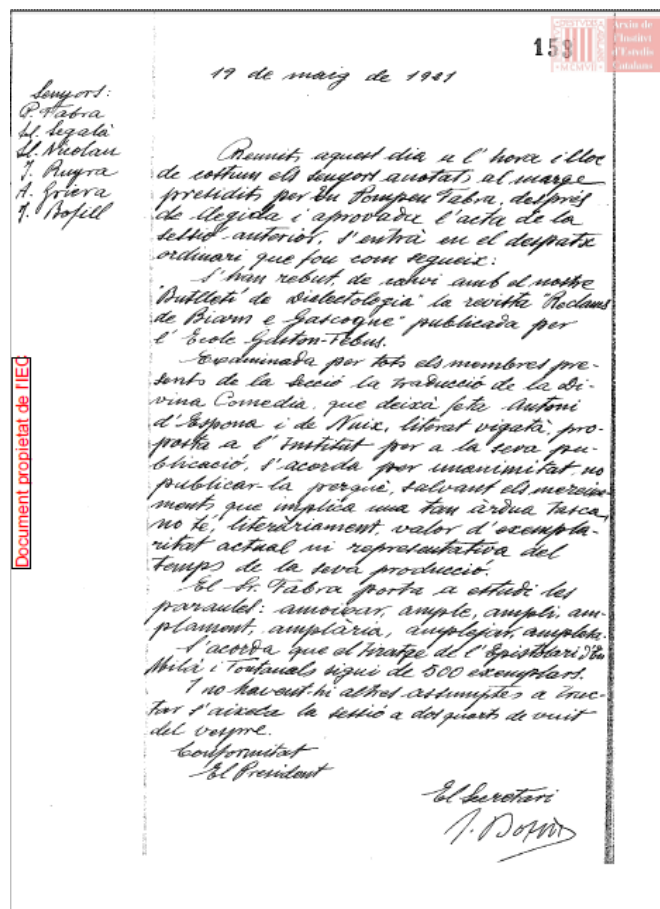 153
Arxiu de
l'Institut
d'Estudis
Catalans
19 de maig de 1921
Senyors:
P. Fabra
Ll. Segalà
Ll. Nicolau
J. Ruyra
A. Griera
J. Bofill
Reunits aquest dia a l'hora i lloc
de costum els senyors anotats al marge
presidits per En Pompeu Fabra, després
de llegida i aprovada l'acta de la
sessió anterior, s'entrà en el despatx
ordinari que fou com segueix:
S'han rebut, de canvi amb el nostre
"Butlletí de Dialectologia" la revista "Reclams
de Biarn e Gascogne" publicada per
l'Ecole Gaston-Febus.
Examinada per tots els membres pre-
sents de la Secció la traducció de la Di-
vina Comedia, que deixà feta Antoni
d'Espona i de Nuix, literat vigatà, pro-
posta a l'Institut per a la seva pu-
blicació, s'acorda per unanimitat, no
publicar-la perquè, salvant els mereixe-
ments que implica una tan àrdua tasca,
no té, literàriament, valor d'exempla-
ritat actual ni representativa del
temps de la seva producció.
El Sr. Fabra porta a estudi les
paraules: amoixar, ample, ampli, am-
plament, amplària, amplejar, ampleta.
S'acorda que el tiratge de l'Epistolari d'En
Milà i Fontanals sigui de 500 exemplars.
I no havent-hi altres assumptes a trac-
tar s'aixeca la sessió a dos quarts de vuit
del vespre.
Conformitat
El President
El Secretari
J. Bofill
Document propietat de l'IEC